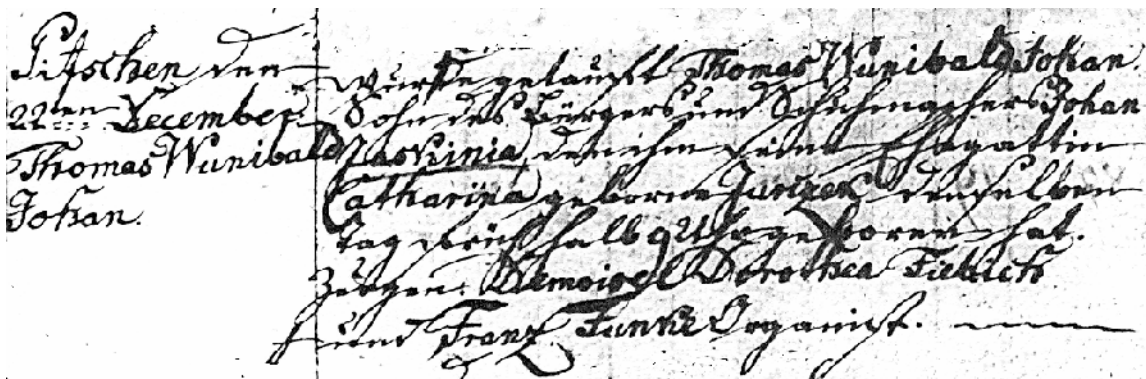 Pitschen den
22ten December
Thomas Wunibald
Johan.
wurde getauft Thomas Wunibald Johan.
Sohn des Bürgers und Schuhmachers Johan
den ihm seine Ehegattin
Catharina geborne denselben
Tag früh halb 9 Uhr geboren hat.
Zeugen. Demoisel Dorothea
und Franz Funke Organist.